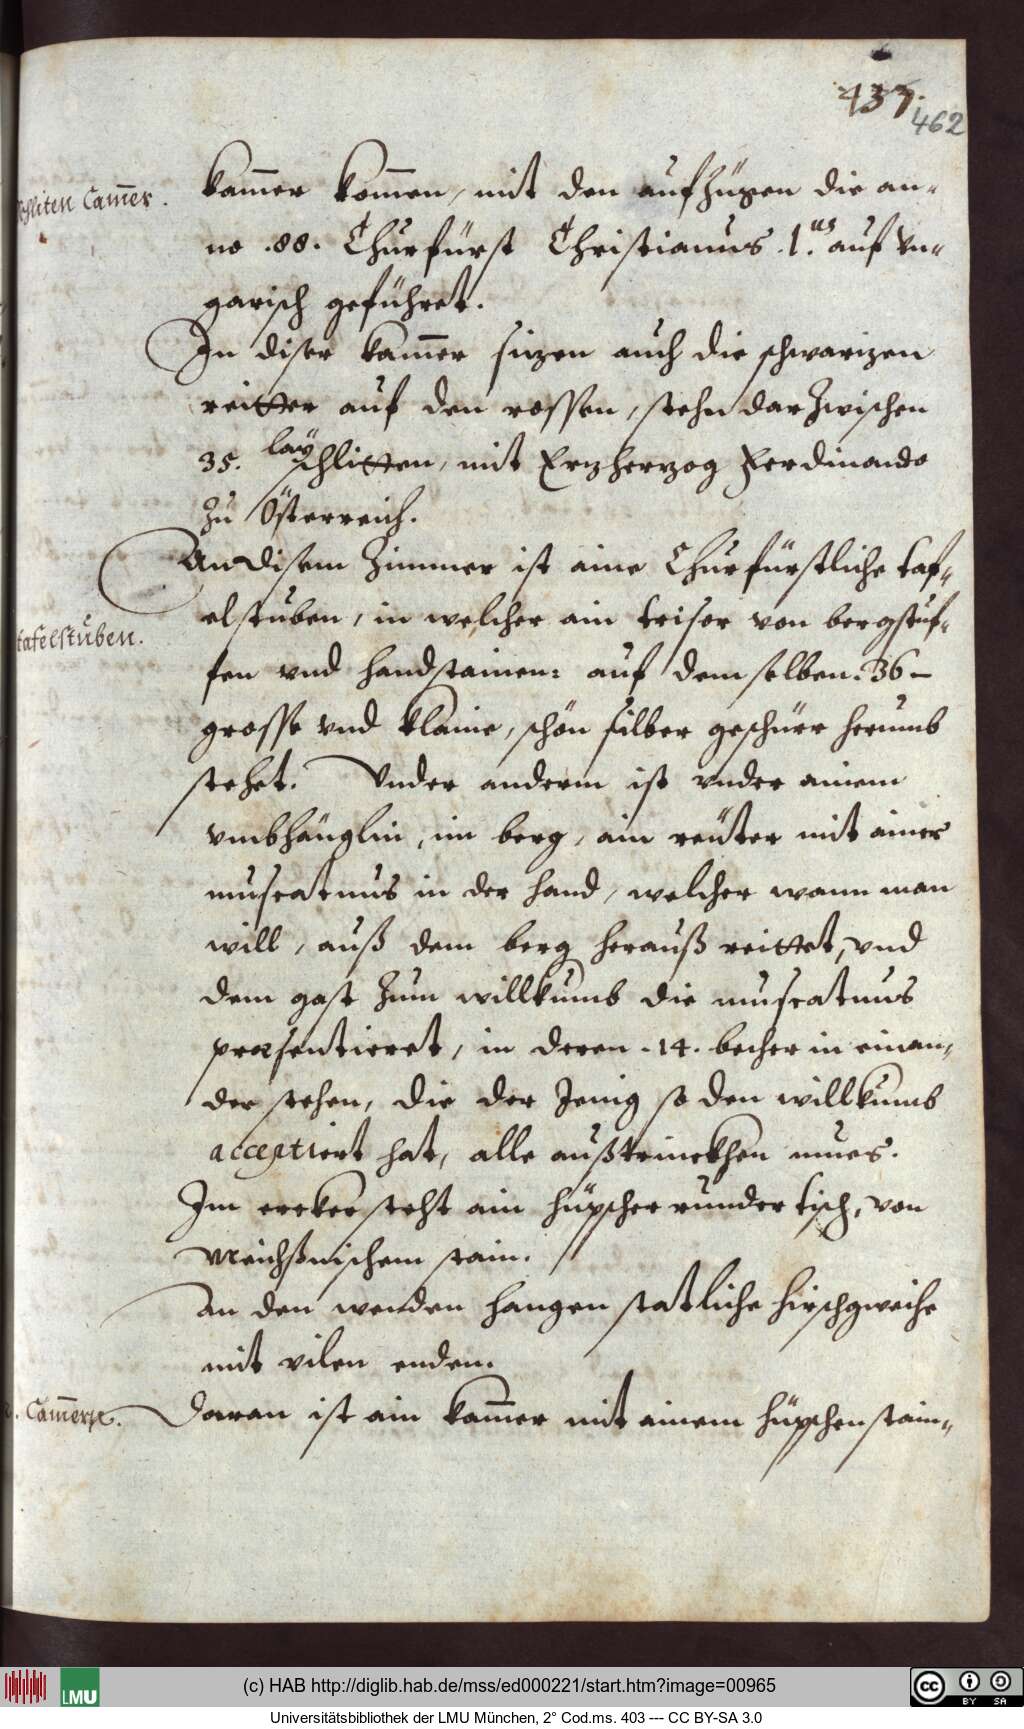 437.
462
Schliten Cam̄er.
kam̄er kom̄en, mit den aufzügen die an-
no .88. Churfürst Christianus .1.us auf Vn-
garisch geführet.
In diser kam̄er sizen auch die schwarzen
reitter auf den rossen, stehn dar zwischen
35. lay schlitten, mit Erzherzog Ferdinando
zu Österreich.
An disem Zimmer ist aine Churfürstliche taf-
tafelstuben.
elstuben, in welcher ain trisor von bergstuf-
fen vnd handstainen: auf dem selben .36-
grosse vnd klaine, schön silber geschürr herumb
stehet. Vnder anderm ist vnder ainem
vmbhänglin, im berg, ain reüter mit ainer
muscatnus in der hand, welcher wann man
will, auß dem berg herauß reittet, vnd
dem gast zum willkumb die muscatnus
præsentieret, in deren .14. becher in einan-
der stehen, die der Jenig so den willkumb
acceptiert hat, alle außtrinckhen mues.
Im ercker steht ain hüpscher runder tisch, von
Meichßnischem stain.
An den wenden hangen statliche hirschgweihe
mit vilen enden.
Cam̄er
Daran ist ain kam̄er mit ainem hüpschen stain-
LMU
(c) HAB http://diglib.hab.de/mss/ed000221/start.htm?image=00965
cc BY SA
Universitätsbibliothek der LMU München, 2° Cod.ms. 403 --- CC BY-SA 3.0